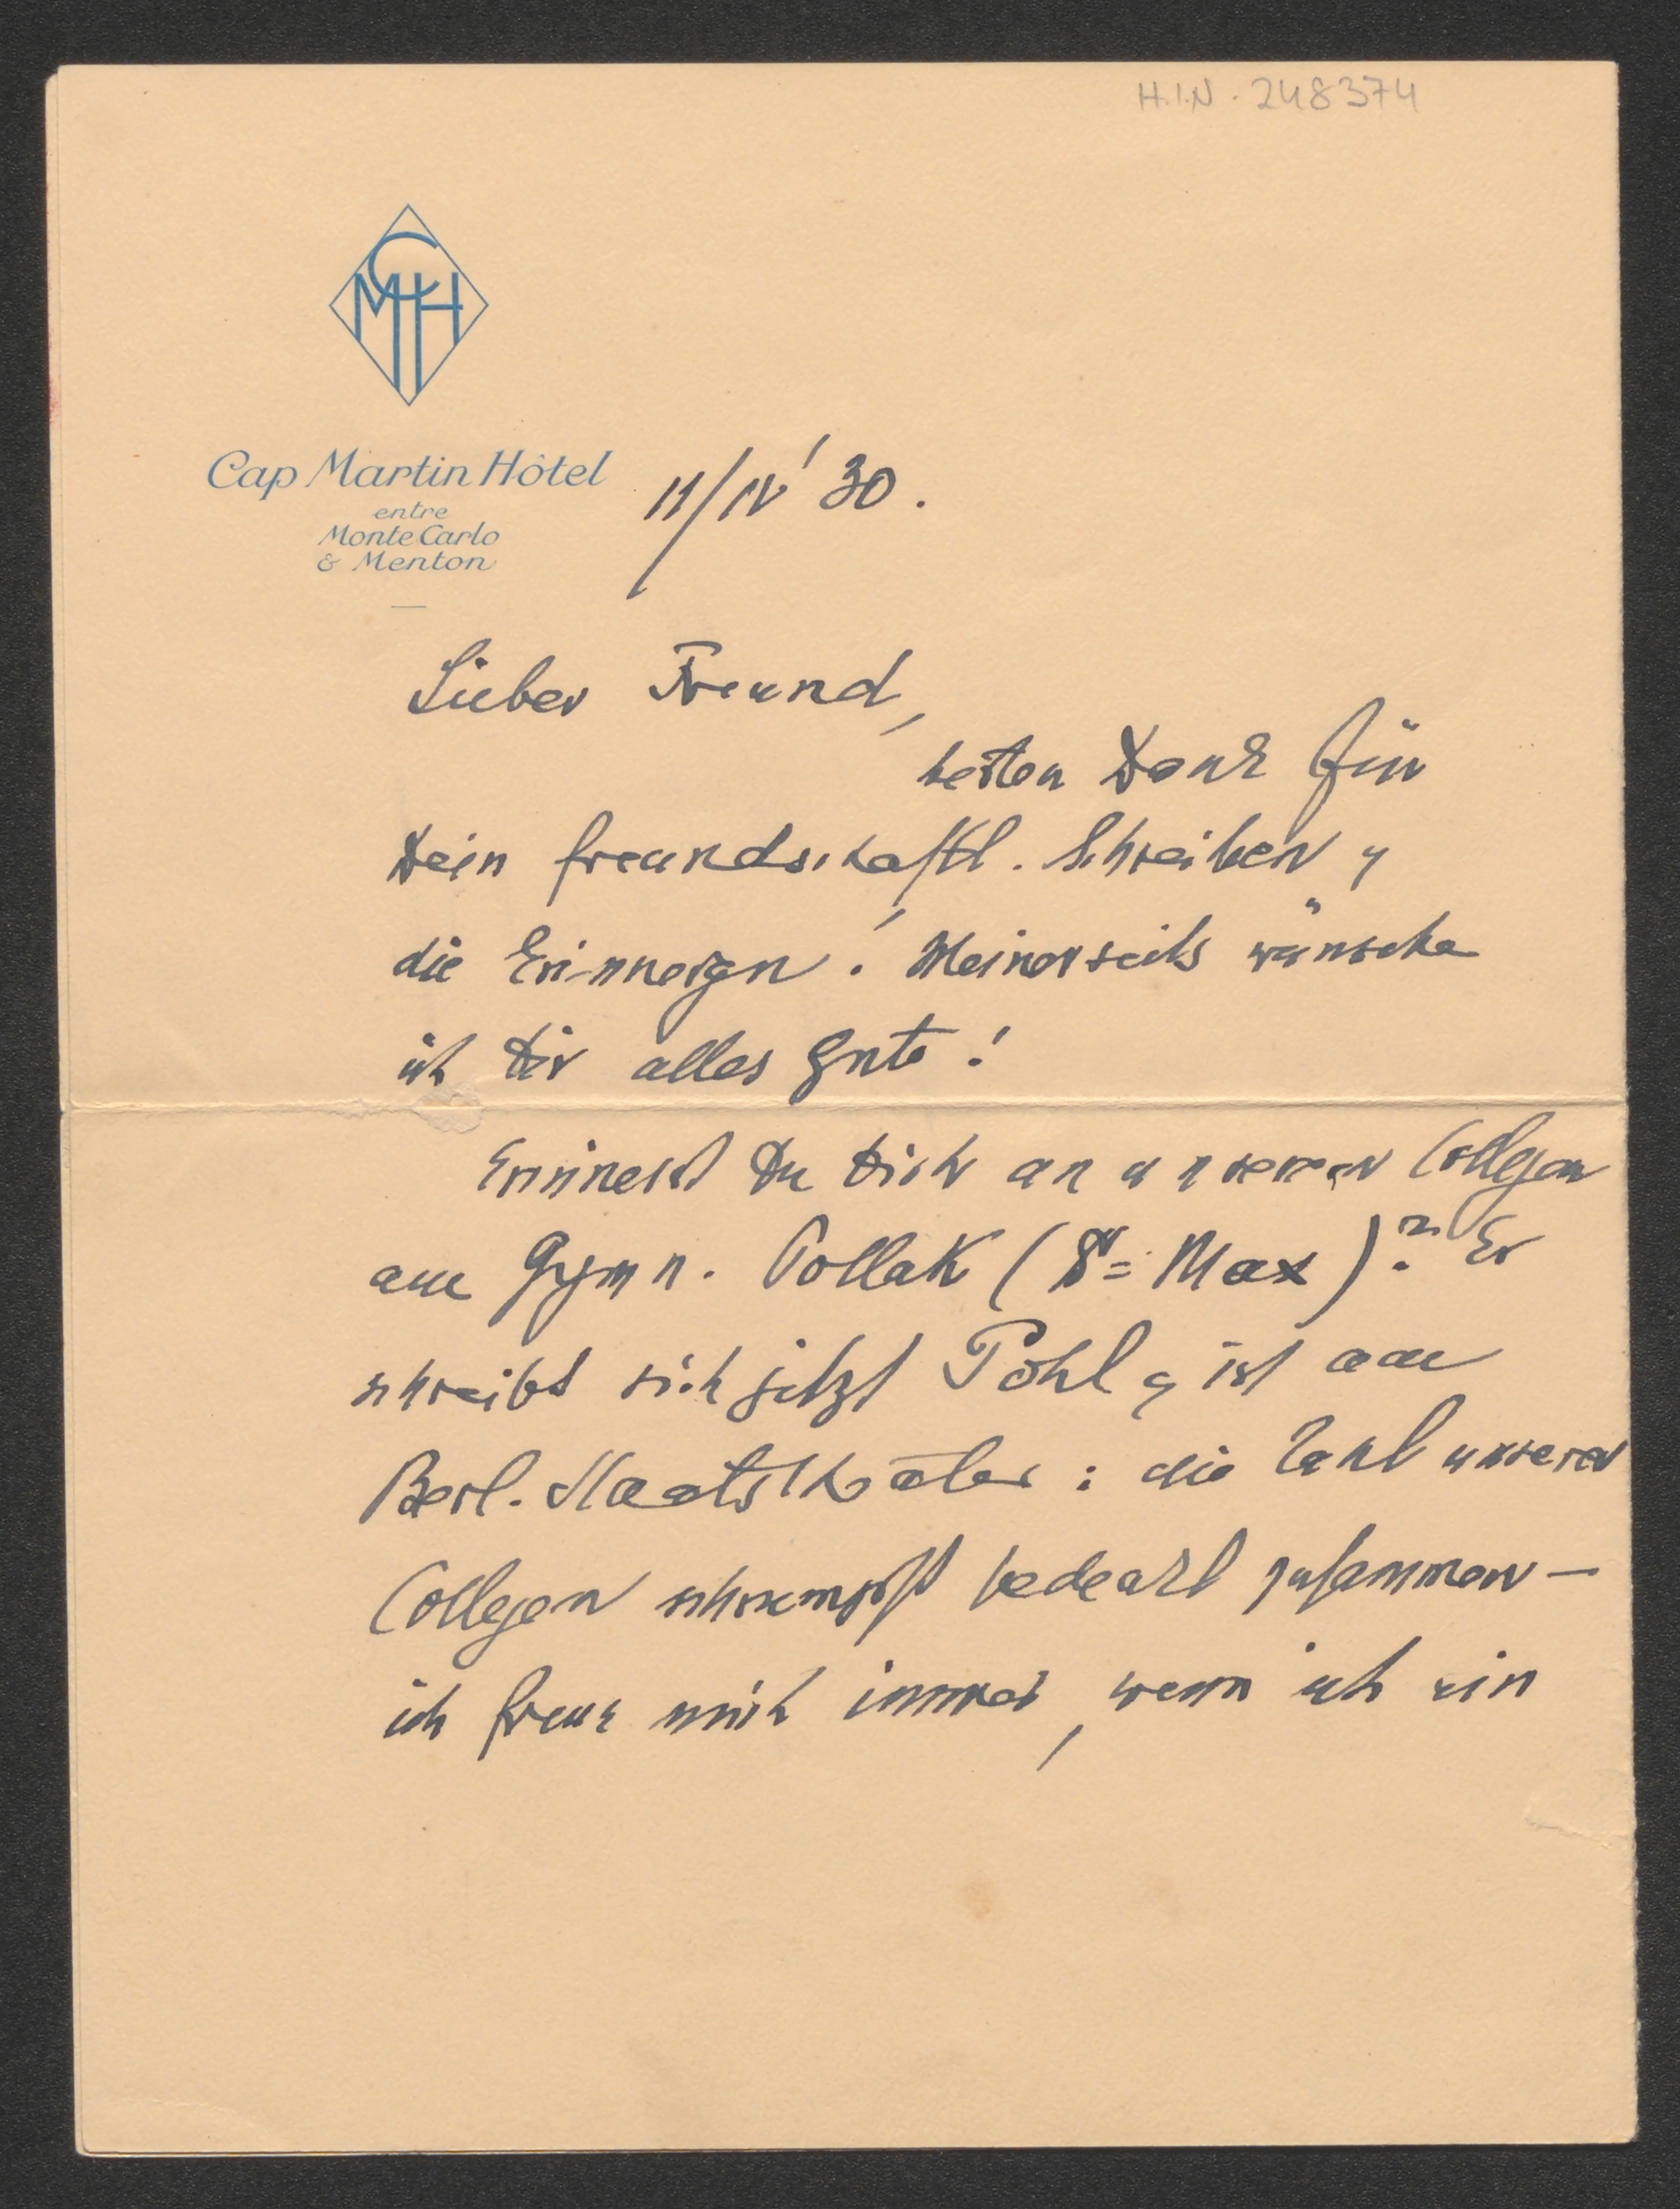 H.I.N. 248374
CMH
Cap Martin Hôtel
entre
Monte Carlo
& Menton
11/IV' 30.
Lieber Freund,
besten Dank für
Dein freundschaftl. Schreiben &
die Erinnergn.! Meinerseits wünsche
ich Dir alles Gute!
Erinnerst Du Dich an unseren Collegen
am Gymn. Pollak (= Max)? Er
schreibt sich jetzt Pohl & ist am
Berl. Staatstheater: die Zahl unserer
Collegen schrumpft zusammen –
ich freue mich immer, wenn ich ein